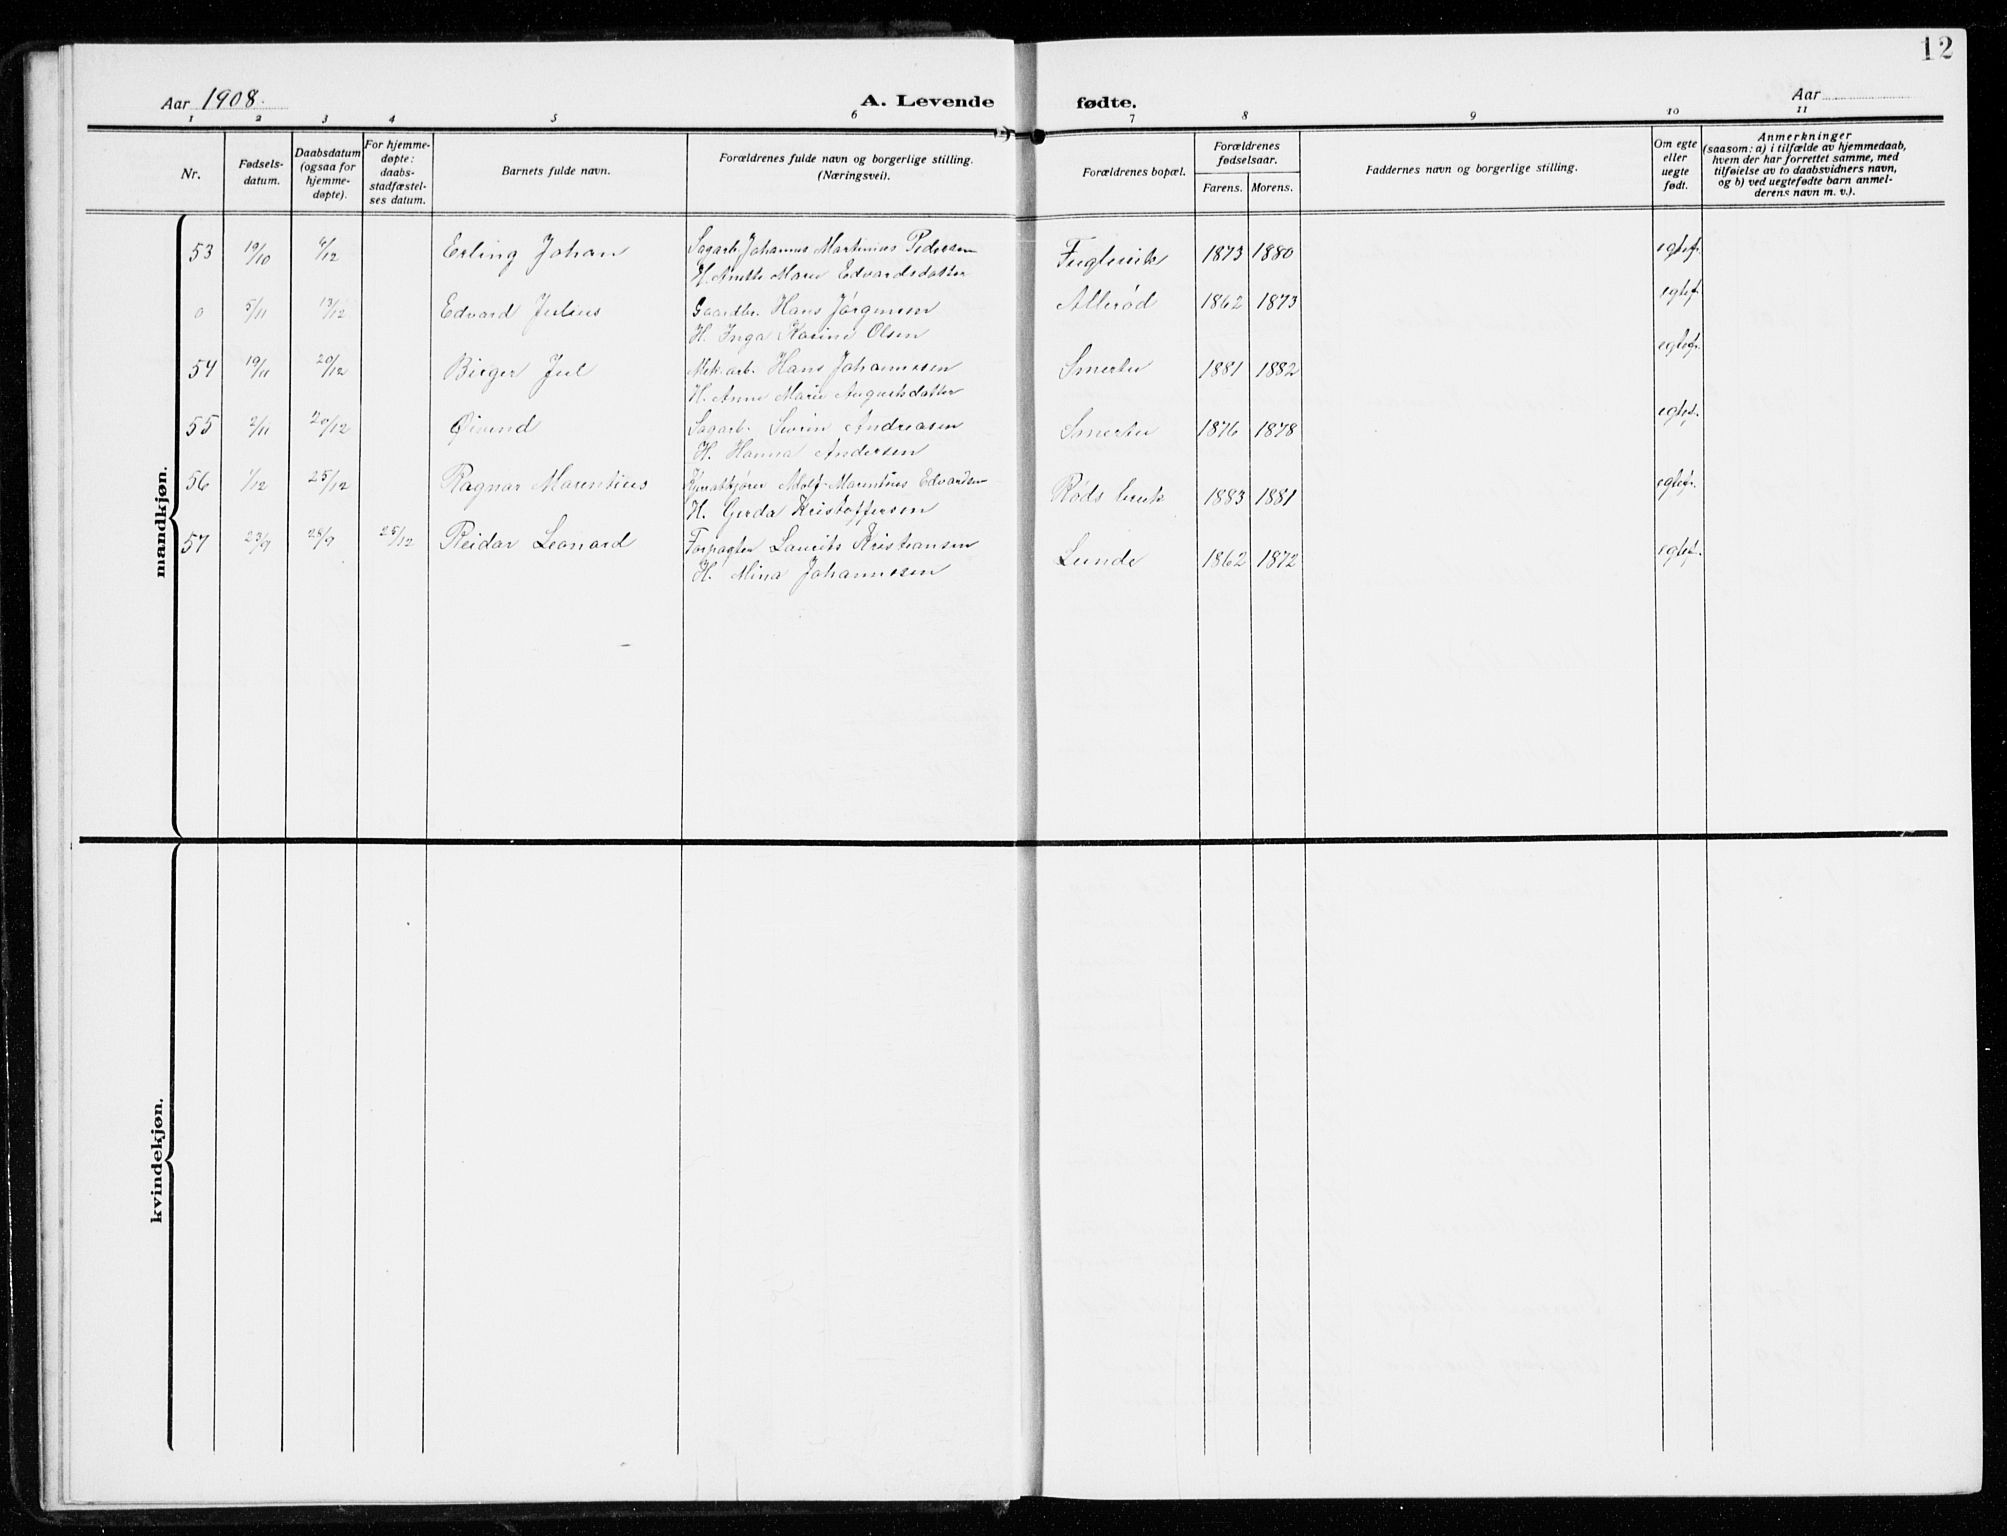 12
Aar 1908.
A. Levende
fødte.
Aar
1 2 3 4 5 6 7 8 9 10 11
Nr.
Fødsels-
datum.
Daabsdatum
(ogsaa for
hjemme-
døpte).
For hjemme-
døpte:
daabs-
stadfæstel-
ses datum.
Barnets fulde navn.
Forældrenes fulde navn og borgerlige stilling.
(Næringsvei).
Forældrenes bopæl.
Forældrenes
fødselsaar.
Farens. Morens.
Faddernes navn og borgerlige stilling.
Om egte
eller
uegte
født.
Anmerkninger
(saasom: a) i tilfælde av hjemmedaab,
hvem der har forrettet samme, med
tilføielse av to daabsvidners navn,
og b) ved uegtefødte barn anmel-
derens navn m. v.).
mandkjøn.
53 19/10 6/12 Erling Johan Sagarb. Johannes Martinius Pedersen Fuglevik 1873 1880 egtef.
H. Anette Marie Edvardsdatter
0 5/11 13/12 Edvard Julius Gaardbr. Hans Jørgensen Allerød 1862 1873 egtef.
H. Inga Karine Olsen
54 19/11 20/12 Birger Jul Mek. arb. Hans Johannesen Smertu 1881 1882 egtef.
H. Anne Marie Augustsdatter
55 2/11 20/12 Øivind Sagarb. Sevrin Andreasen Smertu 1876 1878 egtef.
H. Hanna Andersen
56 1/12 25/12 Ragnar Marentius Adolf Marentius Edvardsen Røds bruk 1883 1881 egtef.
H. Gerda Kristoffersen
57 23/9 28/9 25/12 Reidar Leonard Forpagter Laurits Kristiansen Lunde 1862 1872 egtef.
H. Mina Johannessen
kvindekjøn.